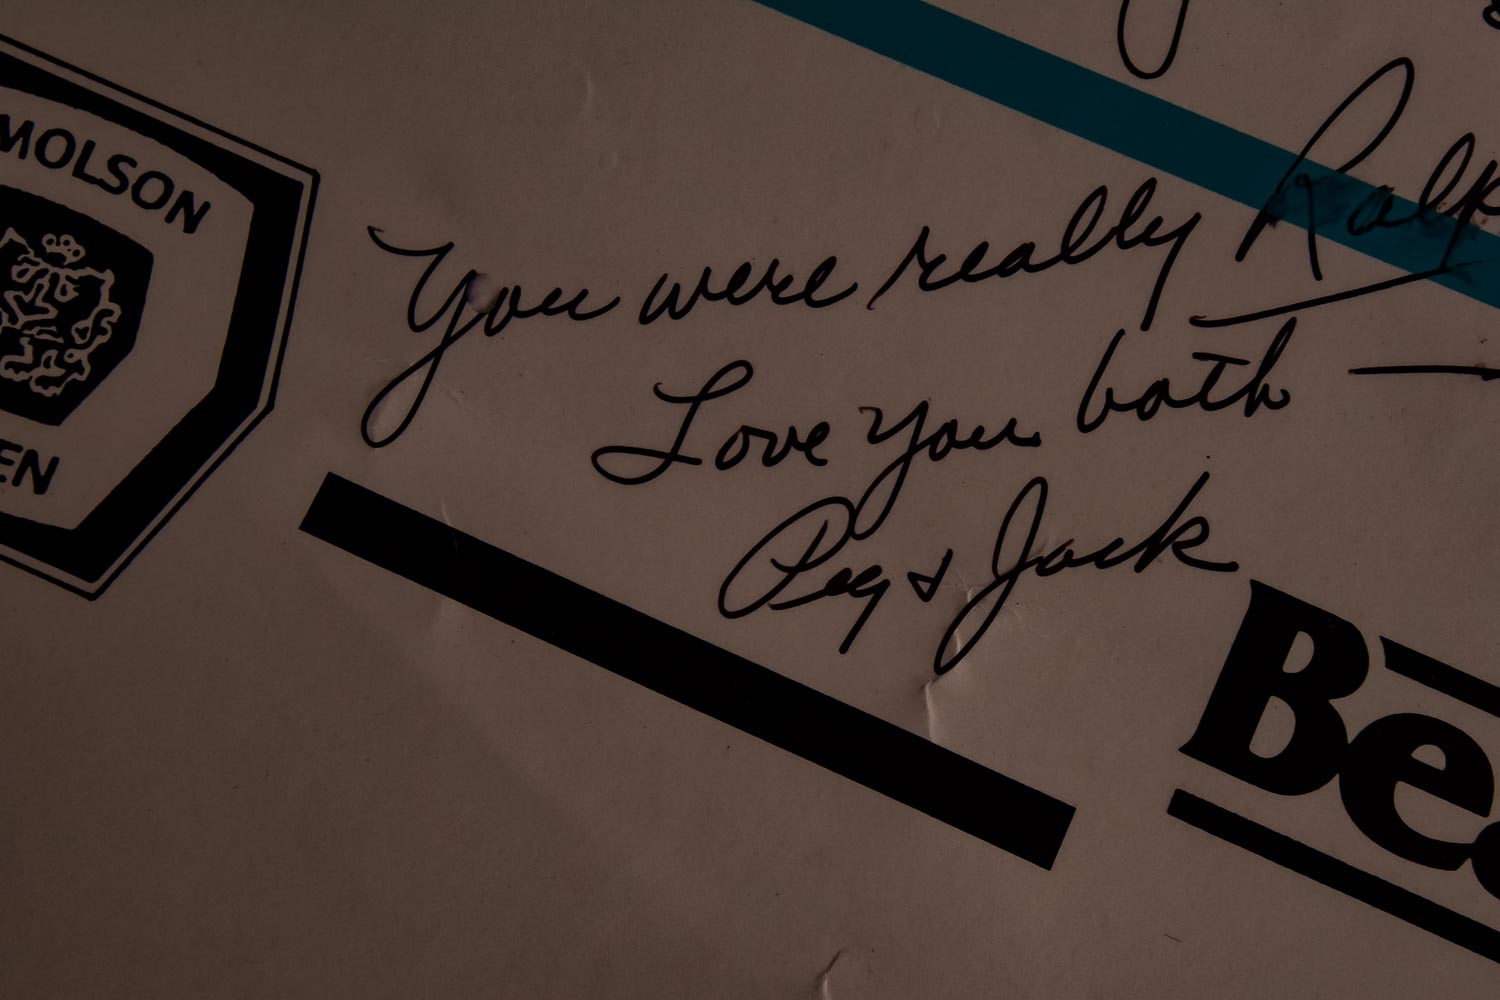 MOLSON
EN
You were really Ralp
Love you both —
Peg & Jack
Be